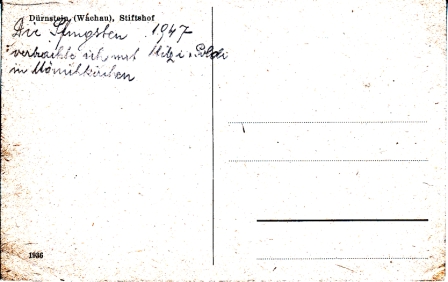 Dürnstein (Wachau), Stiftshof
Die Pfingsten 1947
verbrachte ich mit Mitzi u. Poldi
in Mönichkirchen
1936